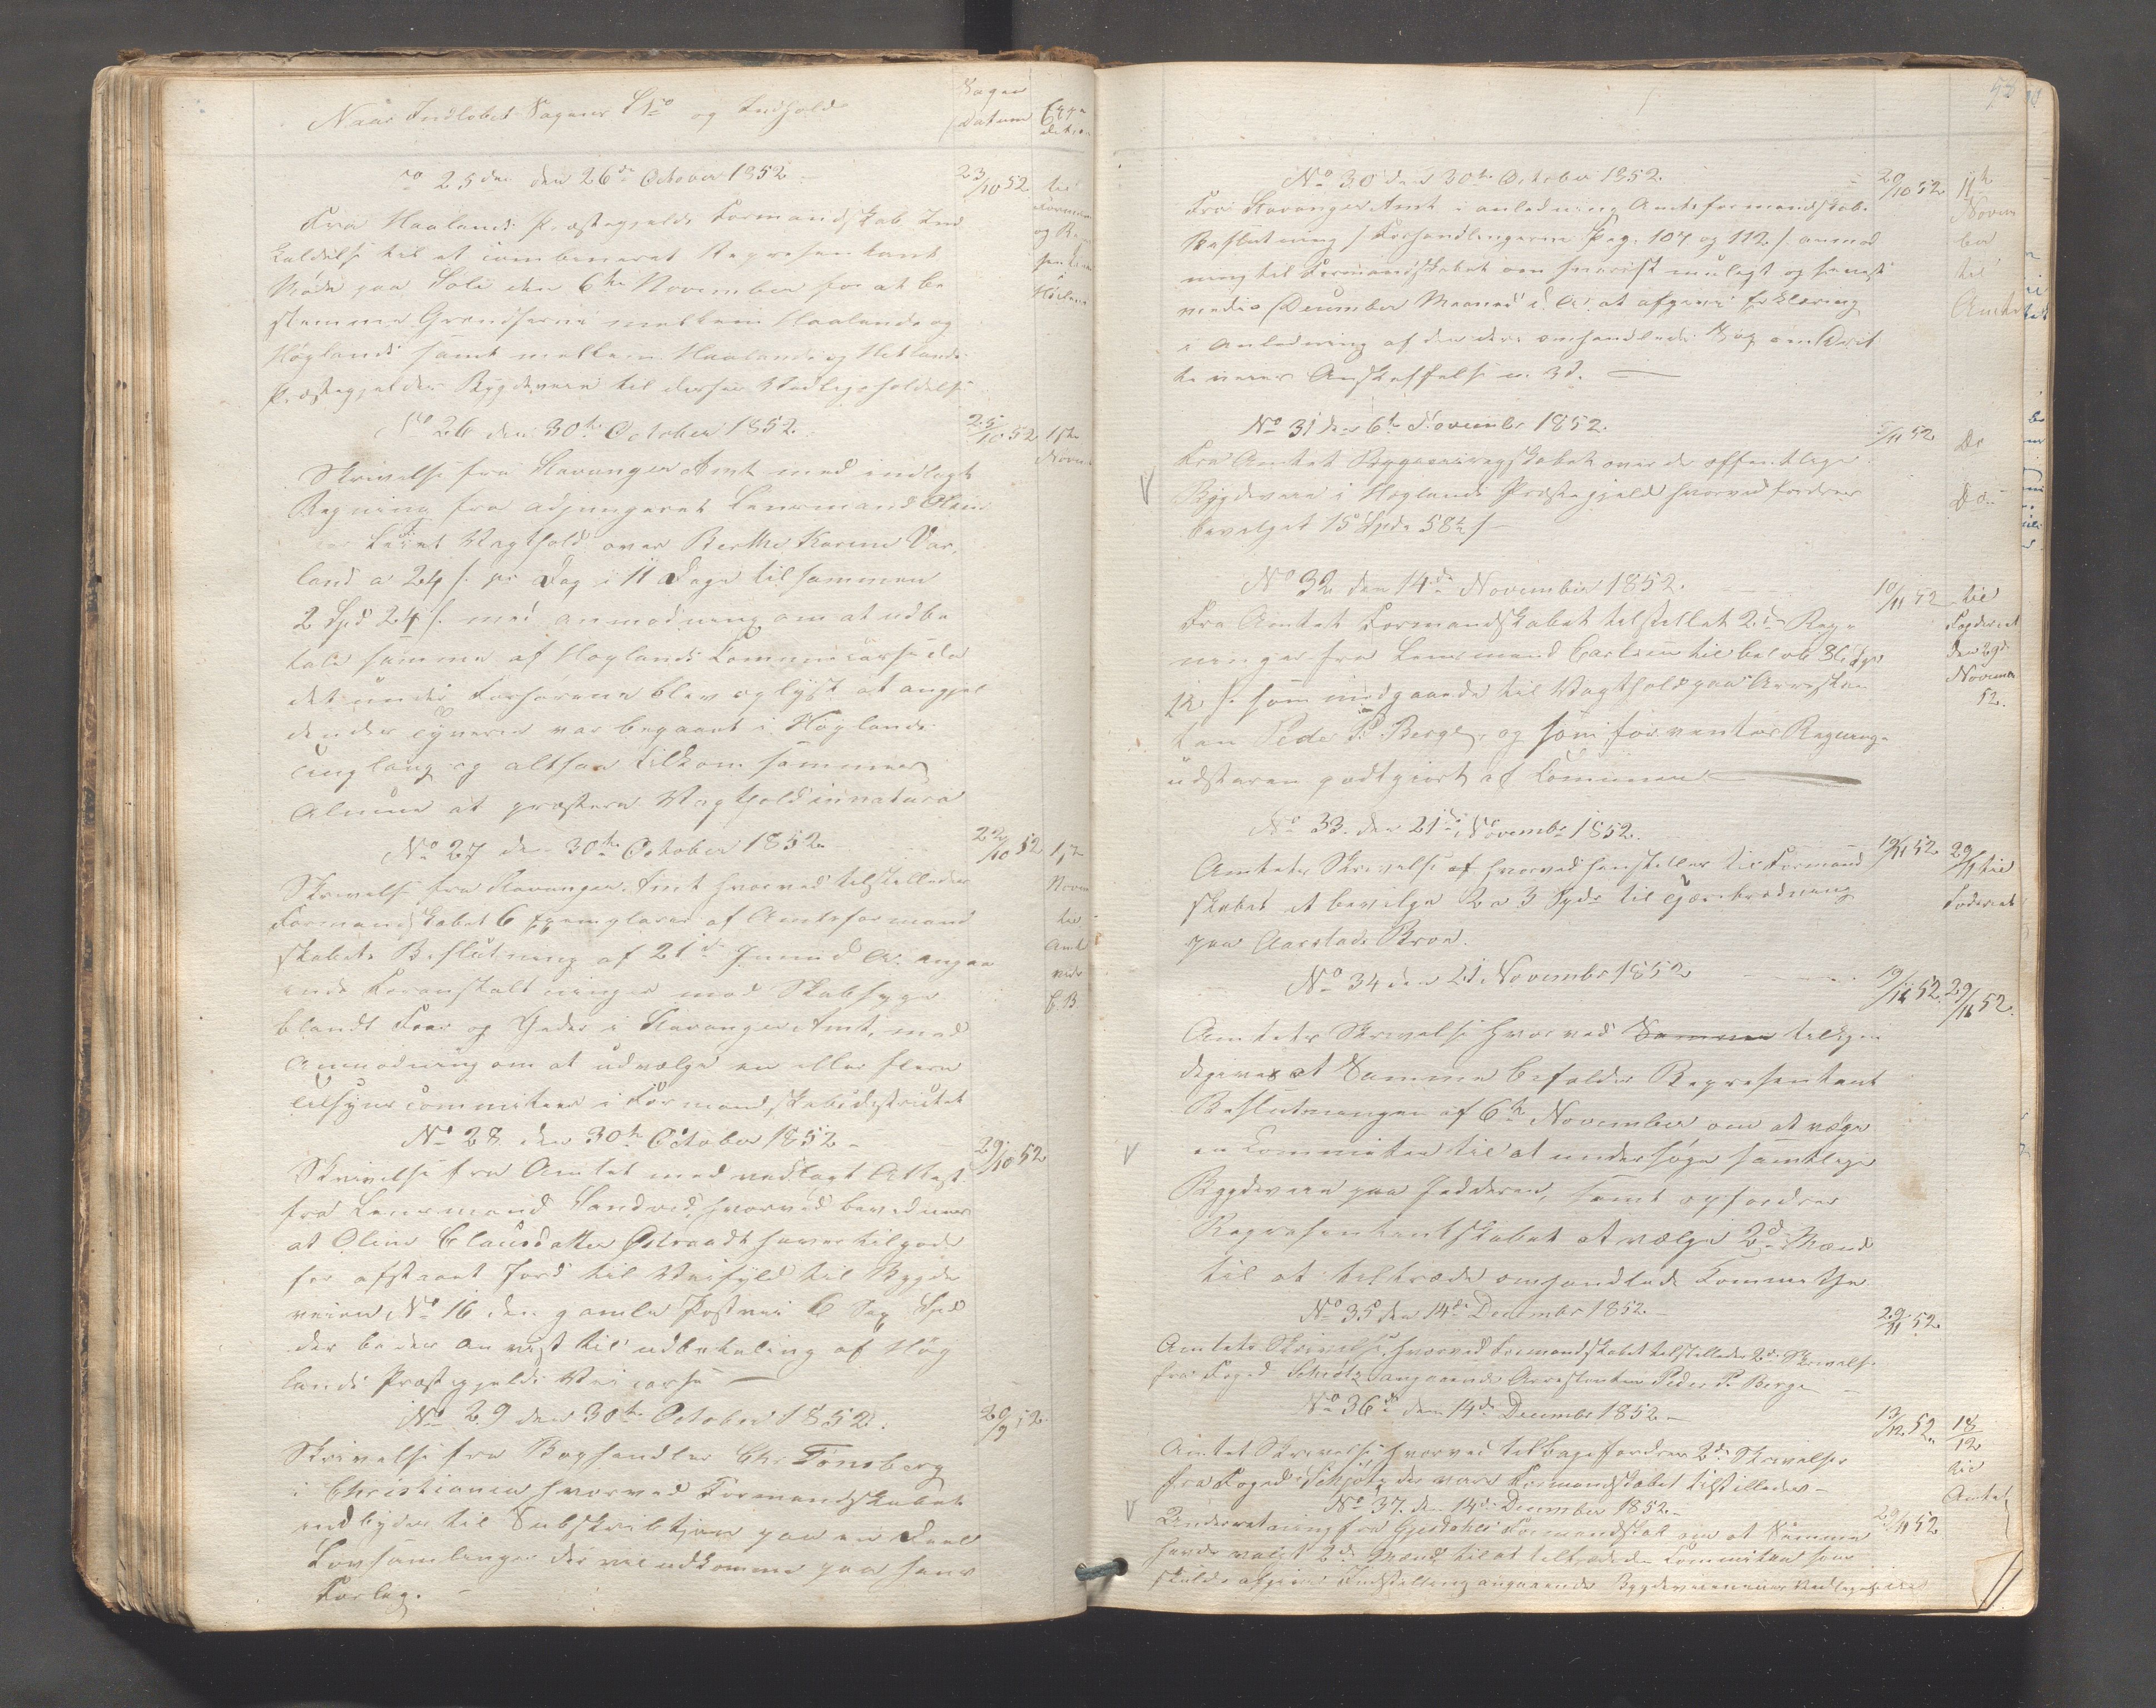 Naar Indløbet Sagens No og Indhold
Sagens Datum
Expedition
No 25 den den 26de October 1852
23/10 52
Fra Haalands Præstegjelds Formandskab Ind
kaldelse til et combineret Repræsentant
Møde paa Sole den 6te November for at be
stemme Grændserne mellem Haalands og
Høylands samt mellem Haalands og Hetlands
Præstegjelder Bygdeveie til deres Vedligeholdelse
No 26 den 30te October 1852.
25/10 52
11te
Novem
Skrivelse fra Stavanger Amt med indlagt
Regning fra adjungeret Lensmand Olsen
for Leiet Vagthold over Berthe Karine Var
land a 24 s. pr Dag i 11 Dage tilsammen
2 Spd 24 s. med anmodning om at udbe
tale samme af Høylands Communecasse da
det under Forhørene blev oplyst at angjel
dendes Tyverie var begaaet i Høylands
Tinglaug og altsaa tilkom sammes
Almue at præstere Vagthold in natura
No 27 den 30te October 1852.
22/10 52
11te
Novem
til
Amt
Skrivelse fra Stavanger Amt hvorved tilstilledes
Formandskabet 6 Exemplarer af Amtsformand
skabets Beslutning af 21de Juni d. A. angaa
ende Foranstaltninger mod Skabsyge
blandt Faar og Gjeder i Stavanger Amt, med
Anmodning om at udvælge en eller flere
Tilsynscommiteer i Formandskabsdistrictet
No 28 den 30te October 1852
29/10 52
Skrivelse fra Amtet med vedlagt Attest
fra Lensmand Sandved, hvorved bevidnes
at Oline Clausdatter Østraadt haver tilgode
for afstaaet Jord til Veifyld til Bygde
veien No 16 den gamle Postvei 6 Sex Spd
der bedes anvist til udbetaling af Høy
lands Præstegjelds Veicasse
No 29 den 30te October 1852.
20/9 52
Skrivelse fra Boghandler Chr. Tønsberg
i Christiania hvorved Formandskabet
indbydes til Subskribtjon paa en Deel
Lovsamlinger der vil udkomme paa hans
Forlag.
No 30 den 30te October 1852.
29/10 52
11te
Novem
ber
til
Amtet
Fra Stavanger Amt i anledning Amtsformandskabs
Beslutning / Forhandlingerne Pag. 107 og 112 / anmod
ning til Formandskabet om snarest muligt og senest
medio December Maaned d. A. at afgive Erklæring
i Anledning af den der omhandlede Sag om Drif
teveies Anskaffelse m. 3d.
No 31 den 6te November 1852.
5/11 52
Do
Do
Fra Amtet Bygveiregskabet over de offentlige
Bygdeveie i Høylands Præstegjeld hvorved fordres
bevilget 15 Spd 58½ s
No 32 den 14de November 1852.
10/11 52
til
Fogderiet
den 29de
November
52.
Fra Amtet Formandskabet tilstillet 2de Reg
ninger fra Lensmand Carlsen til beløb 36 Spd
12 s. som medgaaede til Vagthold paa Arrestan
ten Peder P. Berge, og som forventes Regnings
udstæren godtgiort af Communen
No 33. den 21de Novembr 1852.
19/11 52
29/11 til
Foderiet
Amtets Skrivelse af hvorved henstilles til Formand
skabet at bevilge 2 a 3 Spd til Gjenbrødning
paa Aarstads Broe.
No 34 den 21 Novembr 1852
19/11 52
29/11 52.
Amtets Skrivelse hvorved Samme tilkjen
degives at Samme befalder Repræsentant
Beslutningen af 6te November om at vælge
en Commitee til at undersøge samtlige
Bygdeveie paa Jedderen, samt opfordrer
Repræsentantskabet at vælge 2de Mænd
til at tiltræde omhandlede Committe
No 35 den 14de Decembr 1852.
29/11 52.
Amtets Skrivelse, hvorved Formandskabet tilstilledes 2de Skrivelser
fra Foged Schiøtz angaaende Arrestanten Peder P. Berge
No 36 den 14de Decembr 1852
13/12 52.
18/12
til
Amtet
Amtets Skrivelse hvorved tilbagefordres 2de Skrivelser
fra Foged Schjøtz der vare Formandskabet tilstilledes
No 37. den 14de December 1852.
29/11 52
Underretning fra Gjesdahls Formandskab om at Samme
havde valgt 2de Mænd til at tiltræde den Commitee som
skulde afgive Indstilling angaaende Bygdeveienes Vedligehold